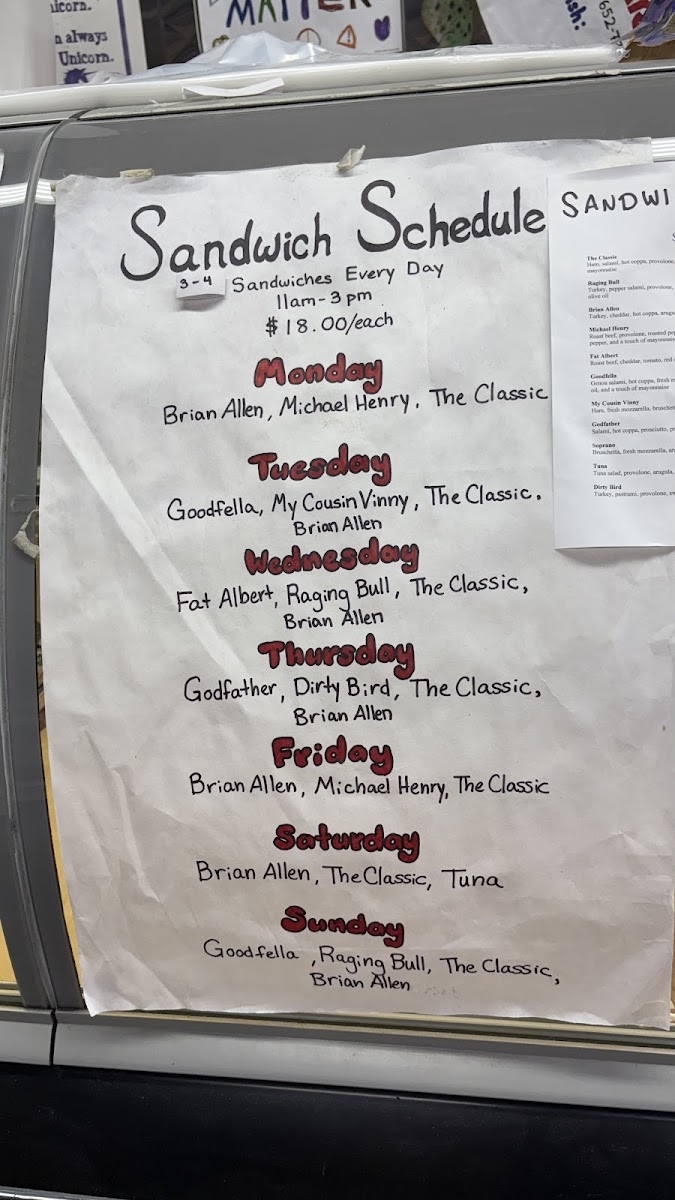 icorn.
n always
Unicorn.
MATTER
652-7
Sandwich Schedule
3-4 Sandwiches Every Day
11am-3pm
$18.00/each
Monday
Brian Allen, Michael Henry, The Classic
Tuesday
Goodfella, My Cousin Vinny, The Classic.
Brian Allen
Wednesday
Fat Albert, Raging Bull, The Classic,
Brian Allen
Thursday
Godfather, Dirty Bird, The Classic,
Brian Allen
Friday
Brian Allen, Michael Henry, The Classic
Saturday
Brian Allen, The Classic, Tuna
Sunday
Goodfella, Raging Bull, The Classic,
Brian Allen
SANDWI
The Classic
Ham, salami, hot coppa, provolone,
mayonnaise
Raging Bull
Turkey, pepper salami, provolone,
olive oil
Brian Allen
Turkey, cheddar, hot coppa, arugu
Michael Henry
Roast beef, provolone, roasted pep
pepper, and a touch of mayonnaise
Fat Albert
Roast beef, cheddar, tomato, red
Goodfella
Genoa salami, hot coppa, fresh m
oil, and a touch of mayonnaise
My Cousin Vinny
Ham, fresh mozzarella, bruschet
Godfather
Salami, hot coppa, prosciutto, pr
Soprano
Bruschetta, fresh mozzarella, ar
Tuna
Tuna salad, provolone, arugula,
Dirty Bird
Turkey, pastrami, provolone, sw